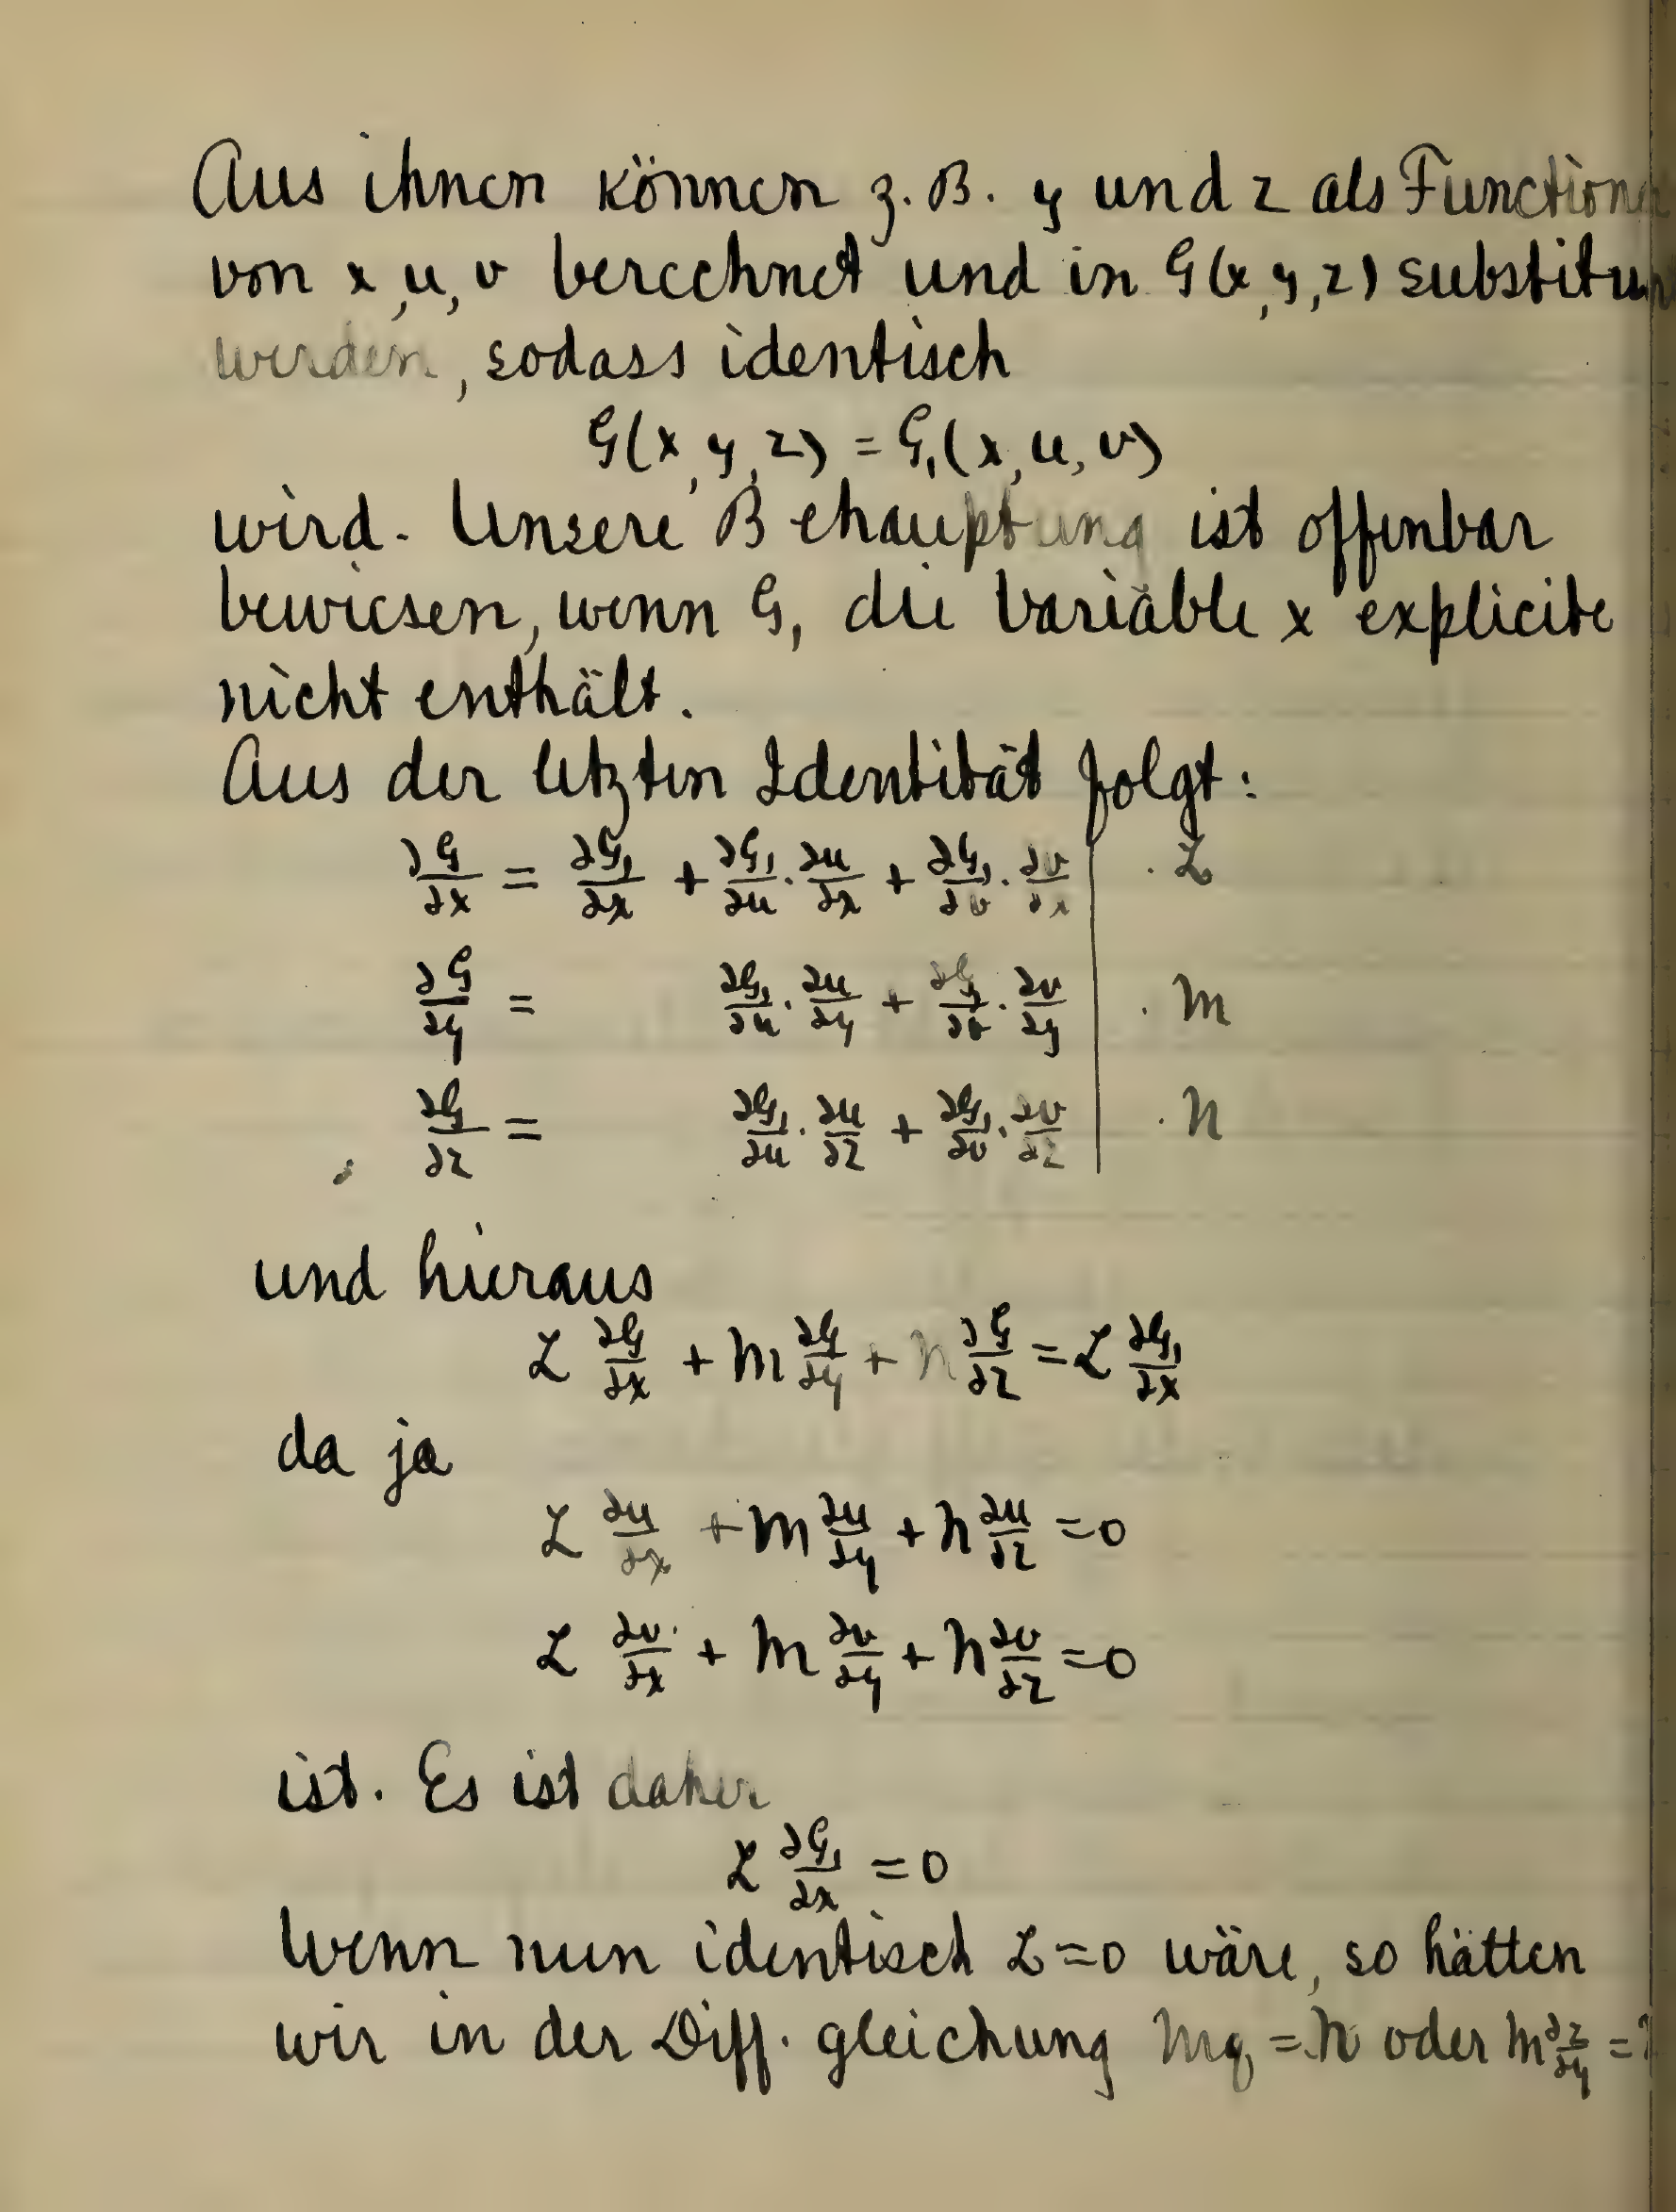 Aus ihnen können z. B. y und z als Functionen
von x, u, v berechnet und in G(x, y, z) substituirt
werden, sodass identisch
G(x, y, z) = G₁(x, u, v)
wird. Unsere Behauptung ist offenbar
bewiesen, wenn G₁ die Variable x explicite
nicht enthält.
Aus der letzten Identität folgt:
∂G/∂x = ∂G₁/∂x + ∂G₁/∂u · ∂u/∂x + ∂G₁/∂v · ∂v/∂x | · L
∂G/∂y = ∂G₁/∂u · ∂u/∂y + ∂G₁/∂v · ∂v/∂y | · M
∂G/∂z = ∂G₁/∂u · ∂u/∂z + ∂G₁/∂v · ∂v/∂z | · N
und hieraus
L ∂G/∂x + M ∂G/∂y + N ∂G/∂z = L ∂G₁/∂x
da ja
L ∂u/∂x + M ∂u/∂y + N ∂u/∂z = 0
L ∂v/∂x + M ∂v/∂y + N ∂v/∂z = 0
ist. Es ist daher
L ∂G₁/∂x = 0
Wenn nun identisch L = 0 wäre, so hätten
wir in der Diff. gleichung Mq = N oder M ∂z/∂y =